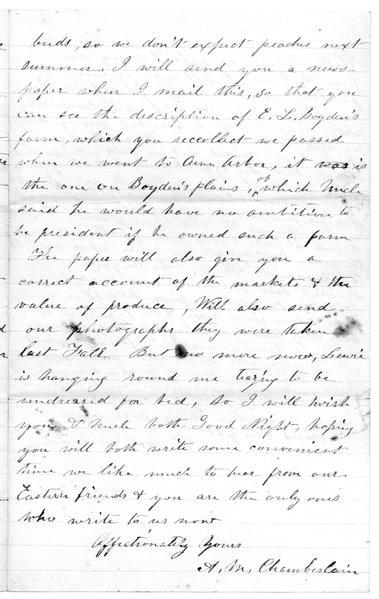 buds, so we don't expect peaches next
summer. I will send you a news-
paper when I mail this, so that you
can see the description of E. L. Boyden's
farm, which you recollect we passed
when we went to Ann Arbor, it was is
the one on Boyden's plains, of which Uncle
said he would have no ambition to
be president if he owned such a farm
The paper will also give you a
correct account of the markets & the
value of produce, Will also send
our photographs they were taken
last Fall. But no more now, Lewie
is hanging round me teasing to be
undressed for bed, So I will wish
you & Uncle both Good Night, hoping
you will both write some convenient
time we like much to hear from our
Eastern friends & you are the only ones
who write to us now
Affectionately Yours
A. M. Chamberlain